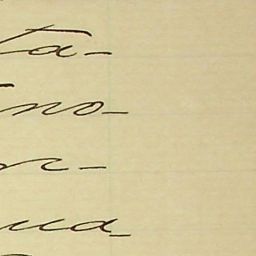 ta-
no-
r-
ua-